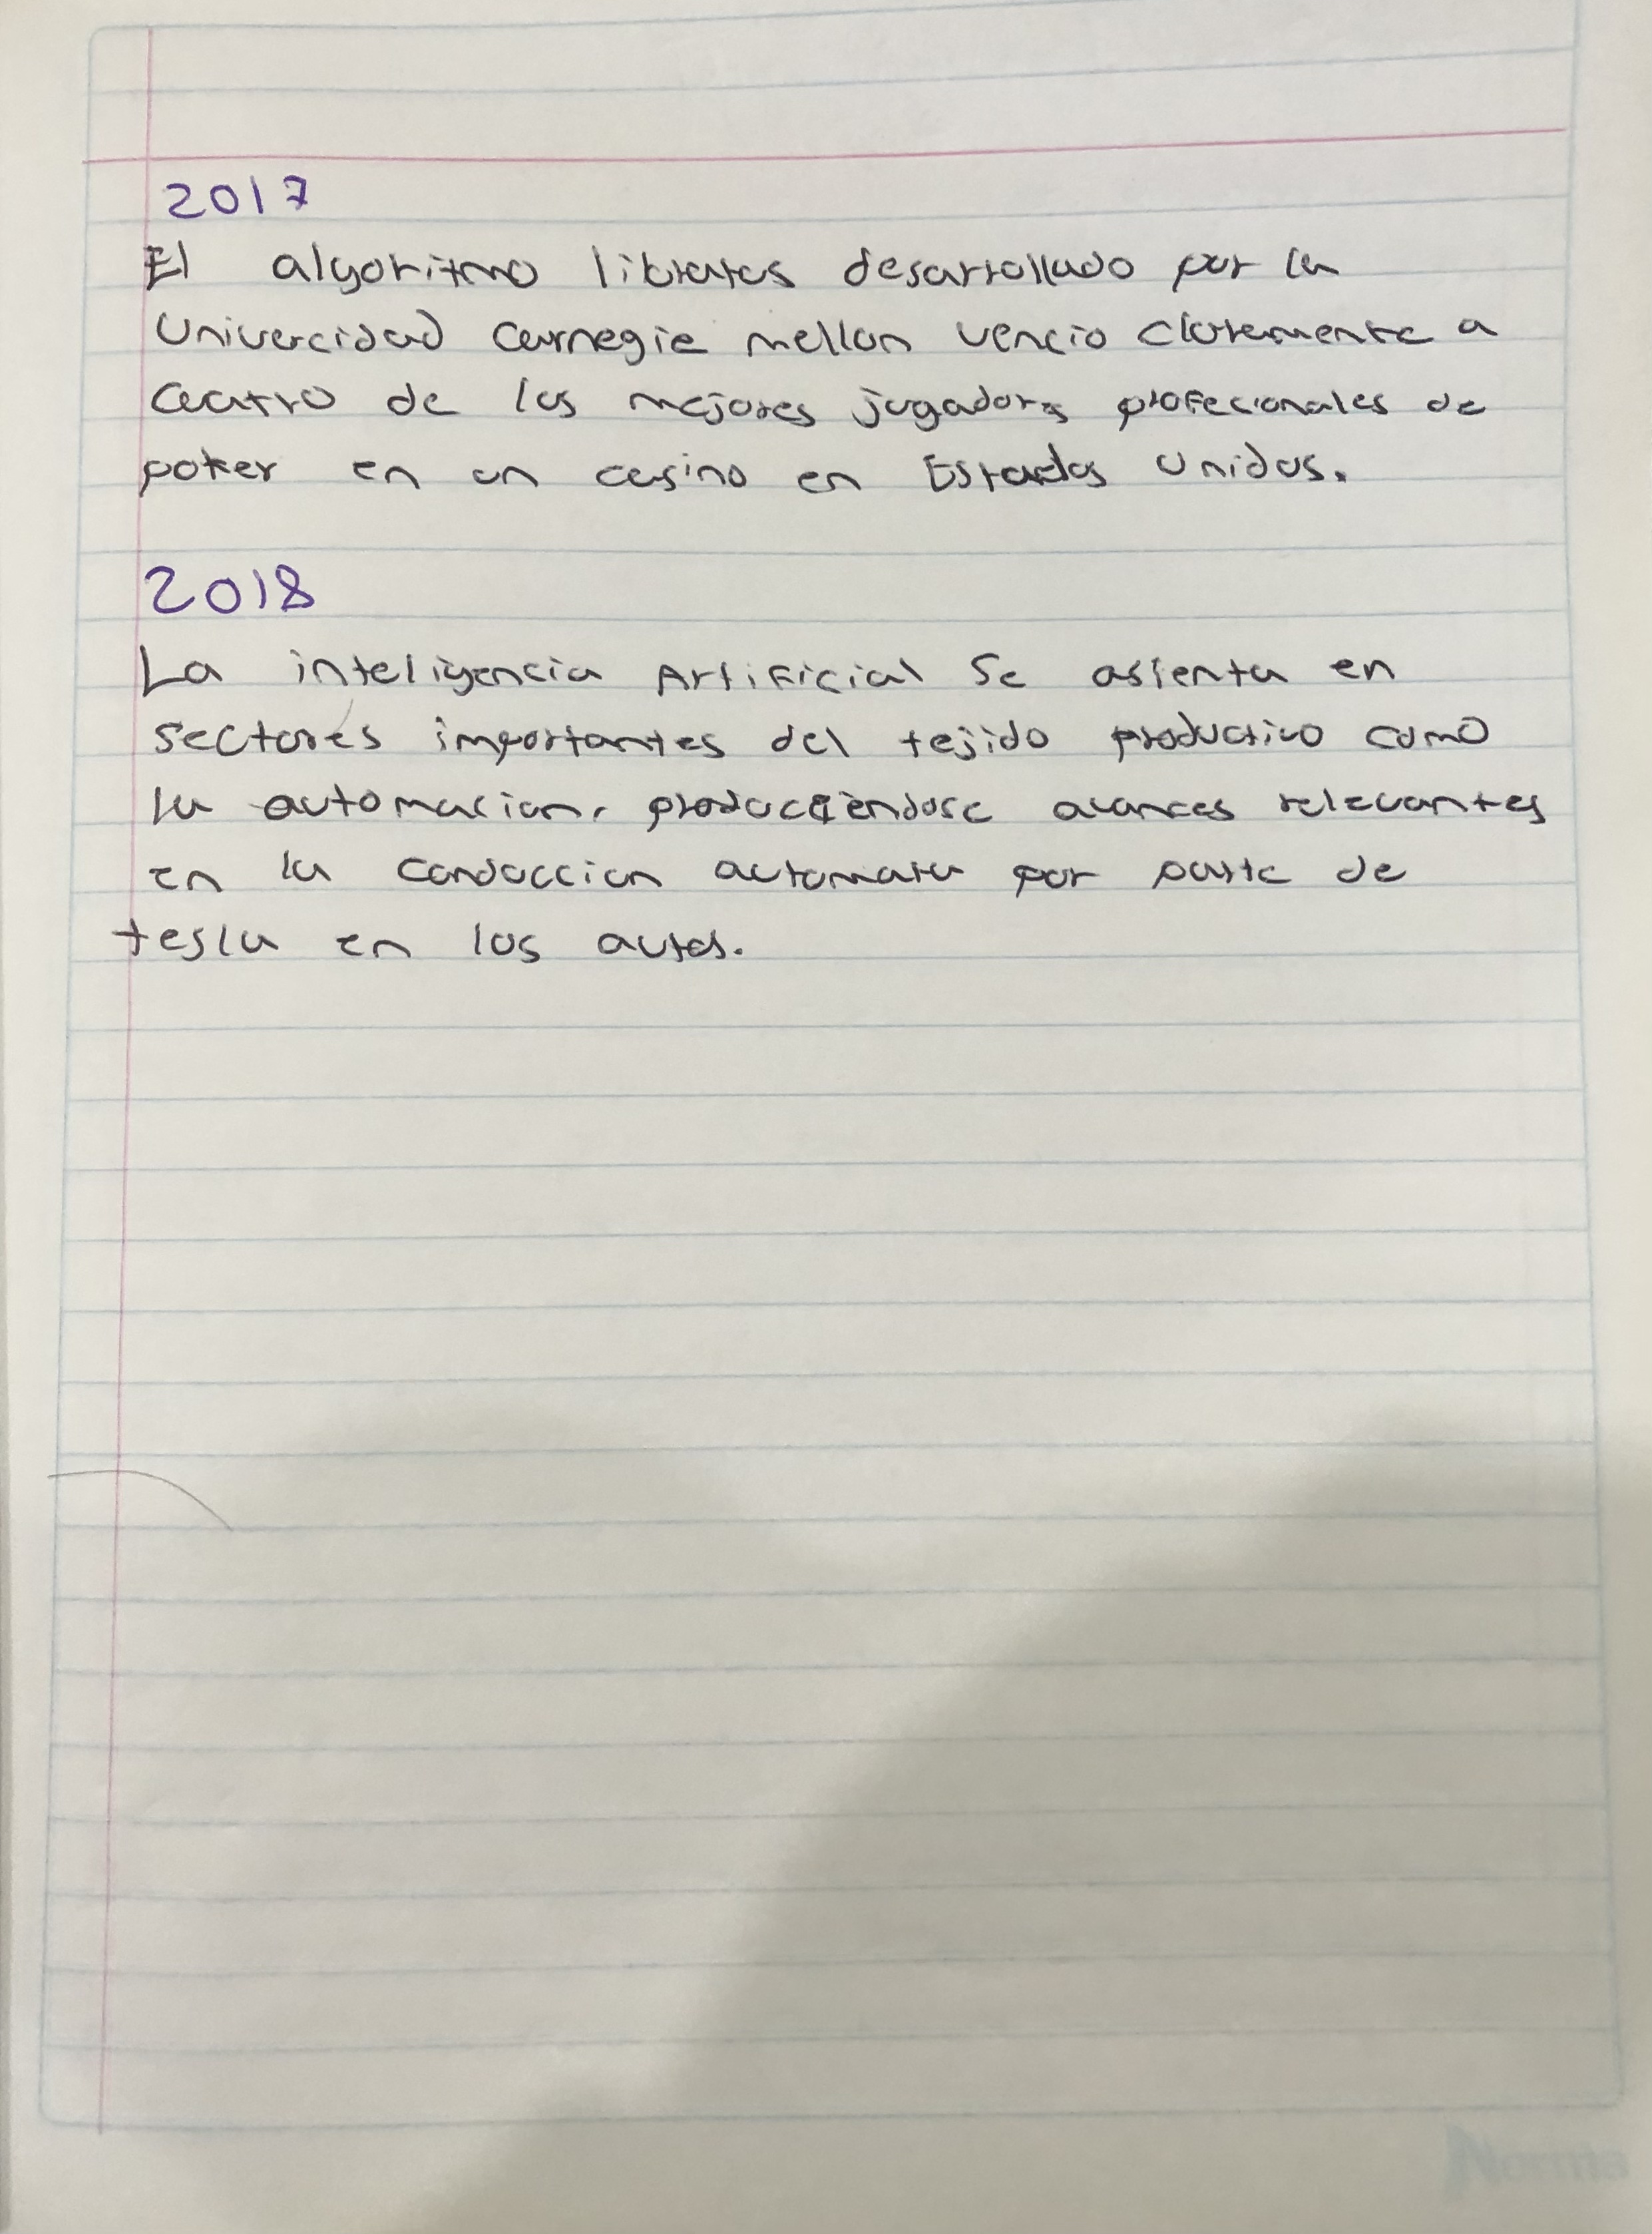 2017
El algoritmo libratos desarrollado por la
Univercidad Carnegie mellon vencio claramente a
Cuatro de los mejores jugadores profecionales de
poker en un casino en Estados Unidos.
2018
La inteligencia Artificial Se asienta en
sectores importantes del tejido productivo como
la automacion, producciendose avances relevantes
en la conduccion automata por parte de
tesla en los autos.
Norma